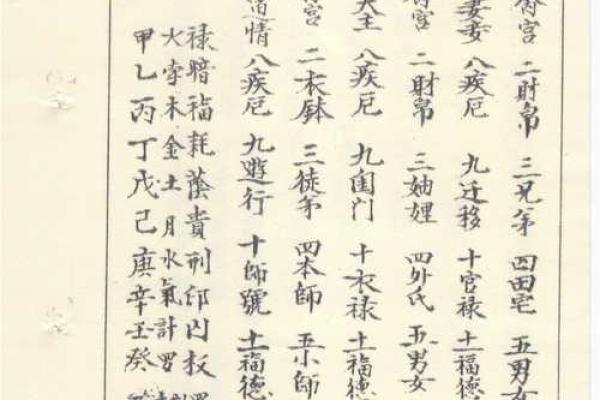 宫 二財帛 三兄弟 四田宅 五男女
妻妾 八疾厄 九迁移 十官禄 十一福德
宫 二財帛 三妯娌 四外氏 五男女
主 八疾厄 九闺门 十衣禄 十一福德
宫 二衣鉢 三徒弟 四本師 五小師
情 八疾厄 九遊行 十師號 十一福德
禄暗福耗蔭貴刑印囚权
火孛木金土月水氣計罗
甲乙丙丁戊己庚辛壬癸